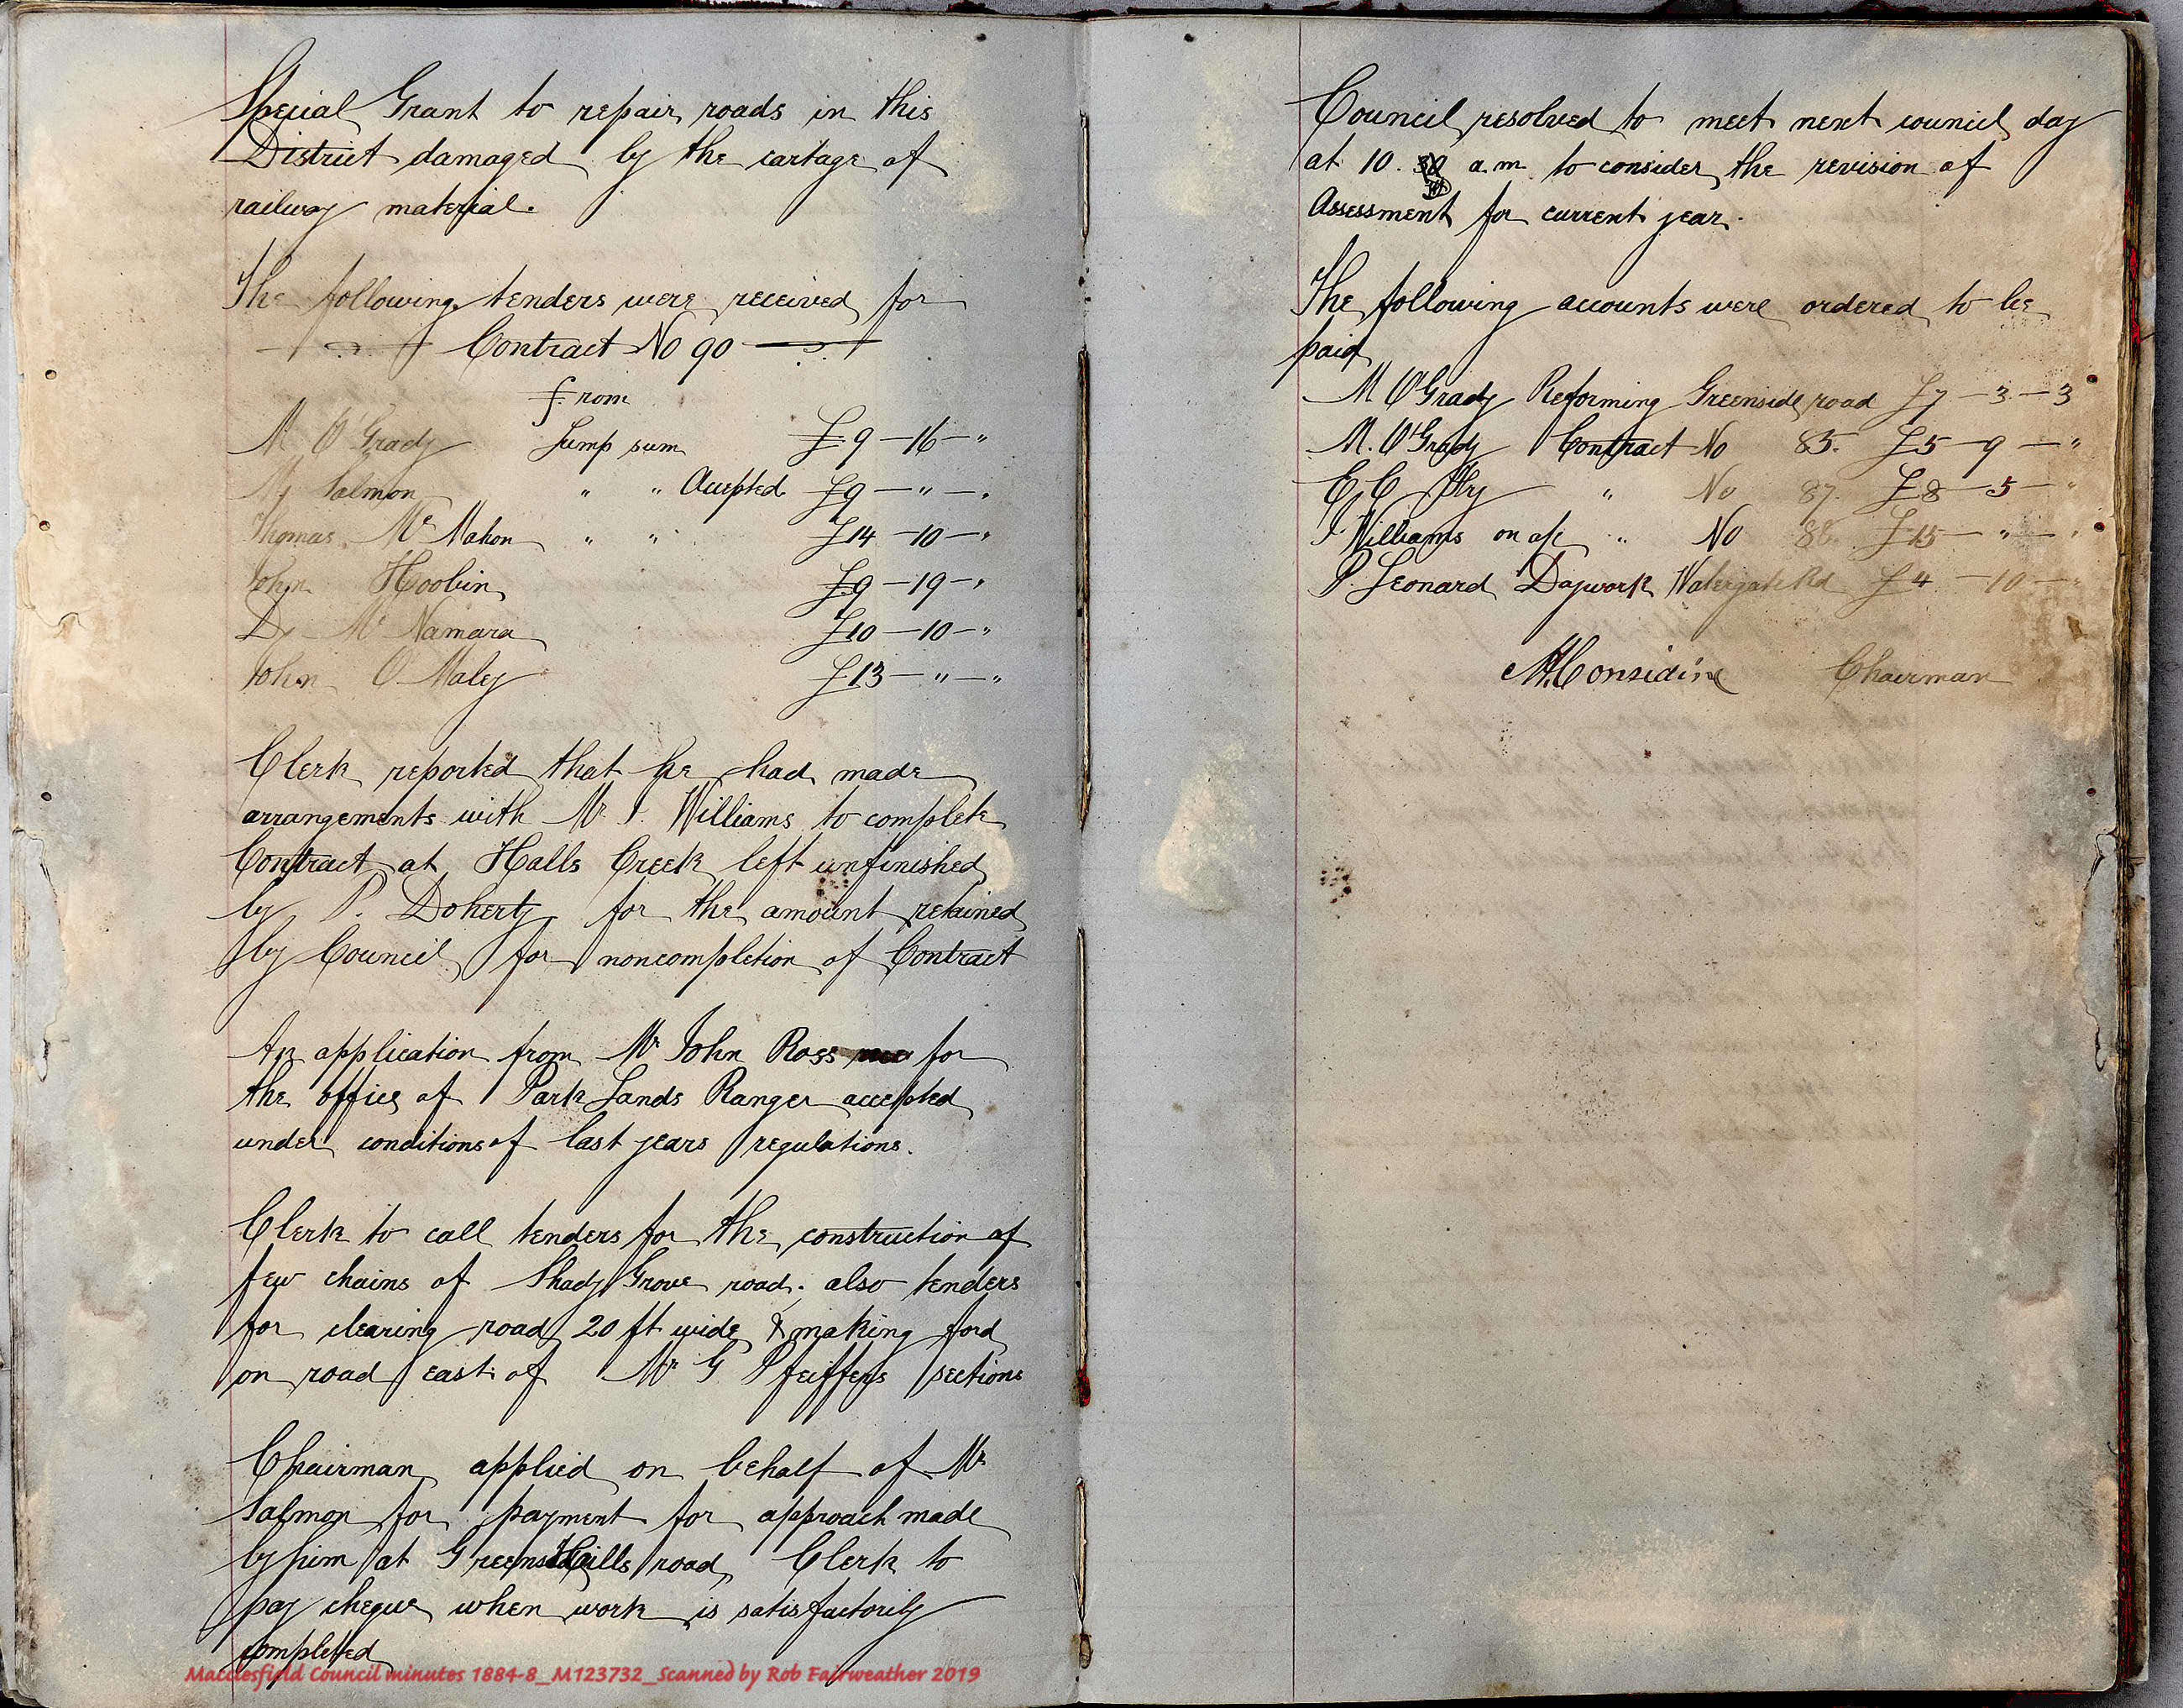 Special Grant to repair roads in this
District damaged by the cartage of
railway material.
The following tenders were received for
Contract No 90
from
M O'Grady Lump sum £9 — 16 — "
M Salmon " " Accepted £9 — " — "
Thomas McMahon " " £14 — 10 — "
John Hoobin £9 — 19 — "
Dy McNamara £10 — 10 — "
John O Maley £13 — " — "
Clerk reported that he had made
arrangements with Mr J. Williams to complete
Contract at Halls Creek left unfinished
by P. Doherty for the amount retained
by Council for noncompletion of Contract
An application from Mr John Ross for
the office of Park Lands Ranger accepted
under conditions of last years regulations.
Clerk to call tenders for the construction of
few chains of Shady Grove road. also tenders
for clearing road 20 ft wide & making ford
on road east of Mr G Pfeiffers sections
Chairman applied on behalf of Mr
Salmon for payment for approach made
by him at Greens Hills road, Clerk to
pay cheque when work is satisfactorily
completed
Macclesfield Council minutes 1884-8_M123732_Scanned by Rob Fairweather 2019
Council resolved to meet next council day
at 10. a.m. to consider the revision of
Assessment for current year.
The following accounts were ordered to be
paid
M O'Grady Reforming Greenside road £7 — 3 — 3
M. O'Grady Contract No 85. £5 — 9 — "
E C " No 87. £8 — 5 — "
J Williams on a/c " No £15 — " — "
P. Leonard Daywork Watergate Rd £4 — 10 — "
M. Considine Chairman